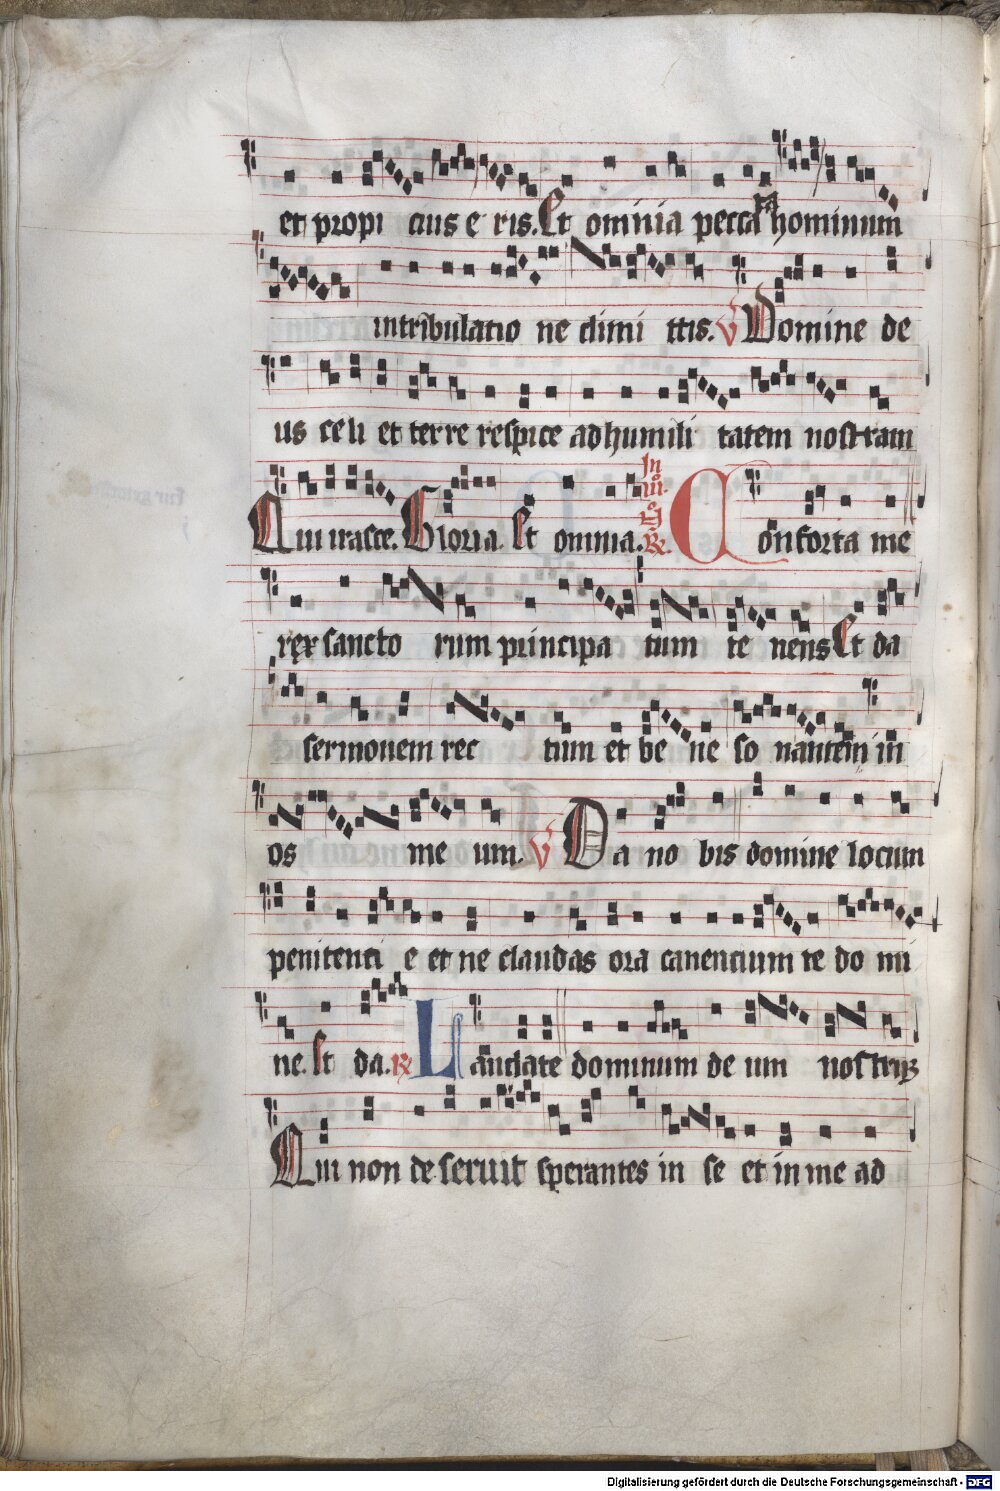 et propi cius e ris. Et omnia peccata hominum
in tribulatio ne dimi ttis. V Domine de
us celi et terre respice ad humili tatem nostram
Qui irasce. Gloria. Et omnia. In iii. R. Conforta me
rex sancto rum principa tum te nens Et da
sermonem rec tum et be ne so nantem in
os me um. V Da no bis domine locum
penitenti e et ne claudas ora canencium te do mi
ne. Et da. R. Laudate dominum de um nostrum
Qui non de seruit sperantes in se et in me ad
Digitalisierung gefördert durch die Deutsche Forschungsgemeinschaft - DFG